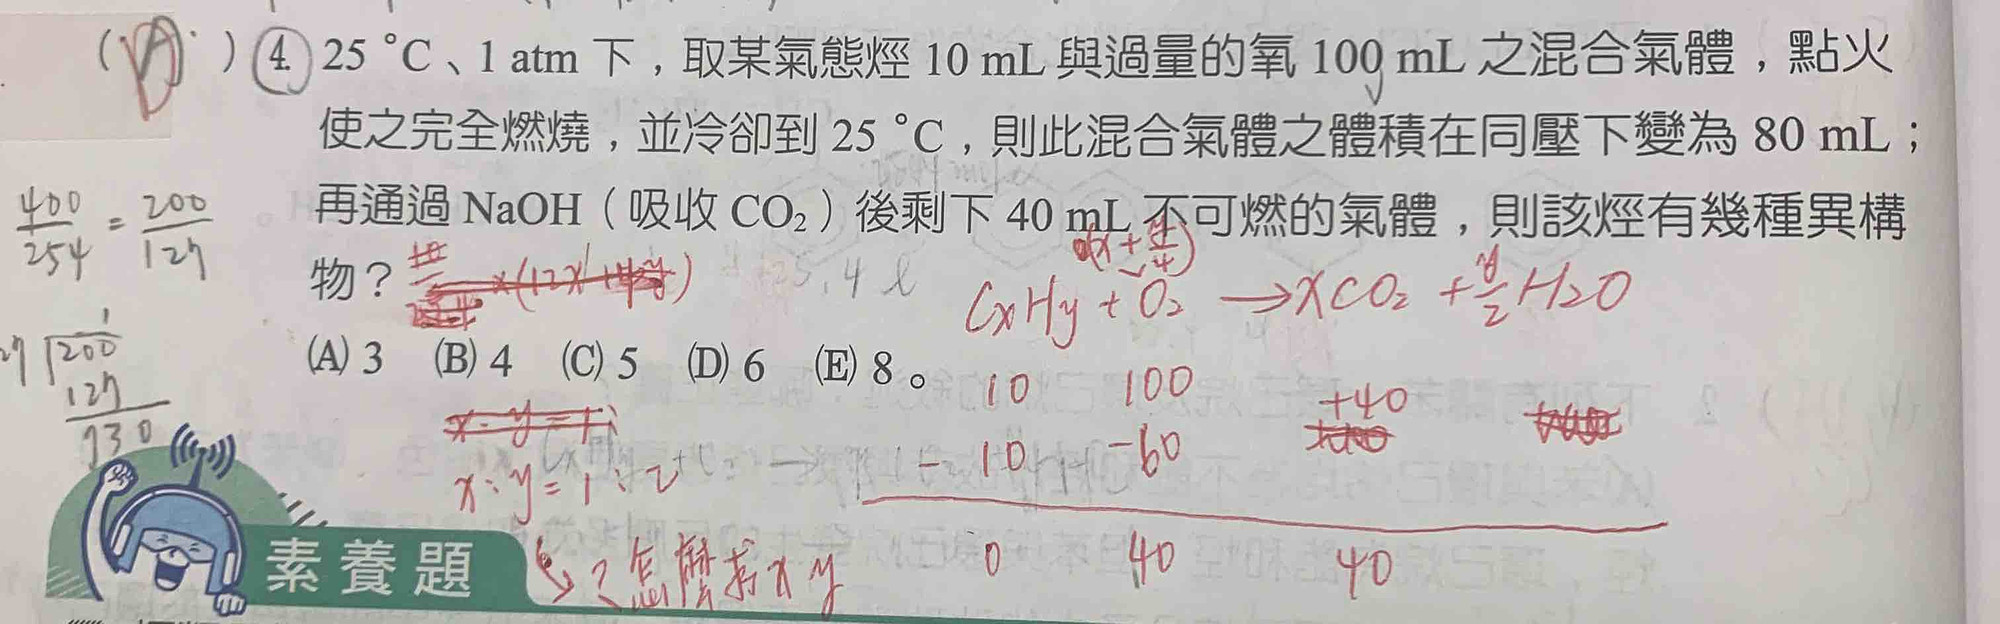 ( A ) 4. 25 °C、1 atm 下，取某氣態烴 10 mL 與過量的氧 100 mL 之混合氣體，點火
使之完全燃燒，並冷卻到 25 °C，則此混合氣體之體積在同壓下變為 80 mL；
再通過 NaOH（吸收 CO₂）後剩下 40 mL 不可燃的氣體，則該烴有幾種異構
物？
400/254 = 200/127
(x + y/4)
CxHy + O₂ → xCO₂ + y/2 H₂O
25.4 l
(A) 3 (B) 4 (C) 5 (D) 6 (E) 8。
1
200
127
730
10 100 +40
x：y = 1：2
- 10 -60
0 40 40
素養題
？怎麼求 x y